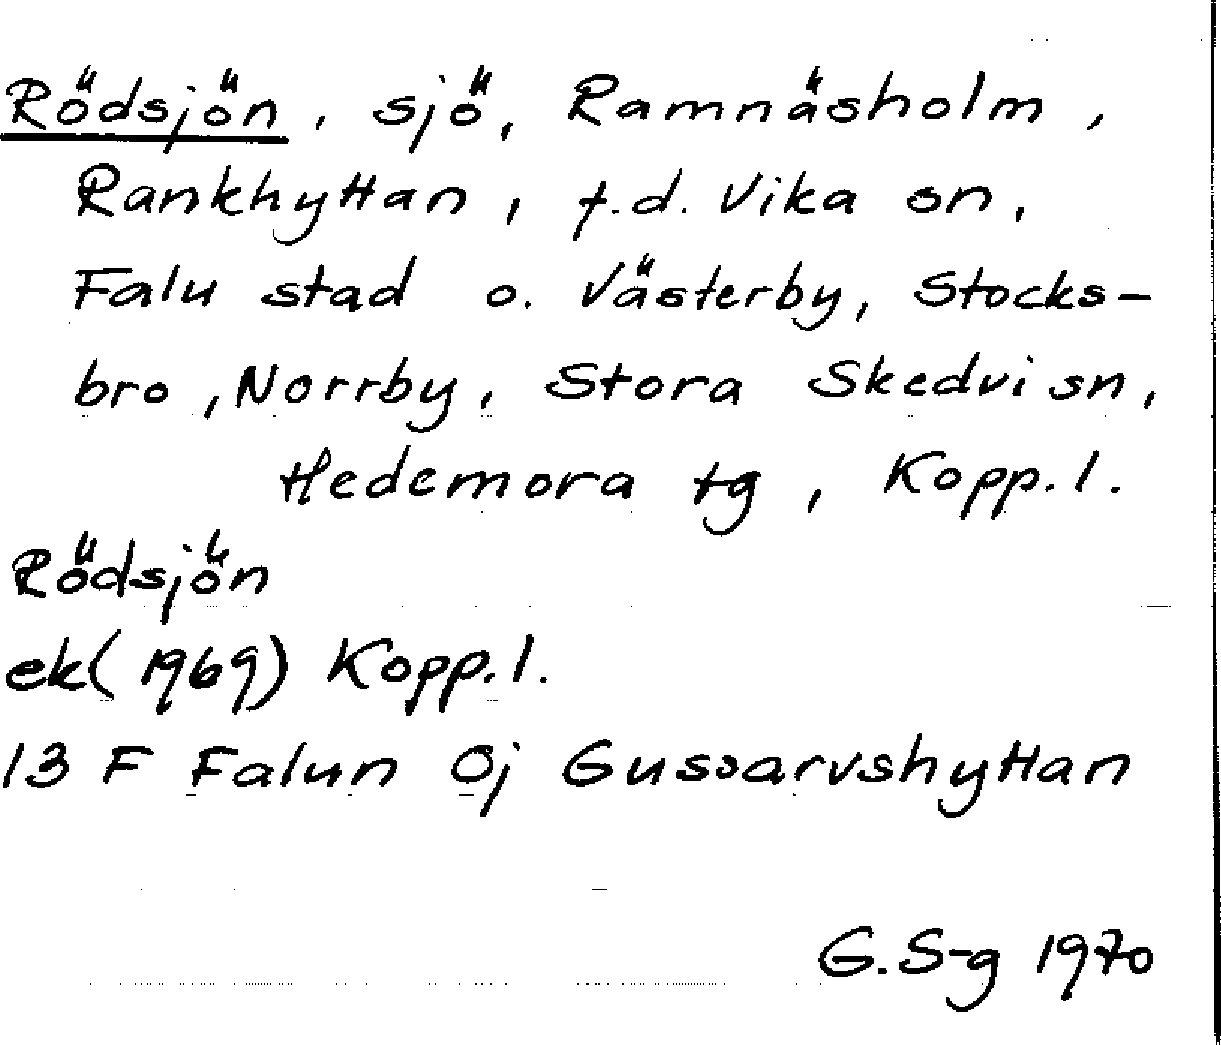 Rödsjön, sjö, Ramnäsholm,
Rankhyttan, f.d. Vika sn,
Falu stad o. Västerby, Stocks-
bro, Norrby, Stora Skedvi sn,
Hedemora tg, Kopp. l.
Rödsjön
ek(1969) Kopp. l.
13 F Falun 0j Gussarvshyttan
G. S-g 1970